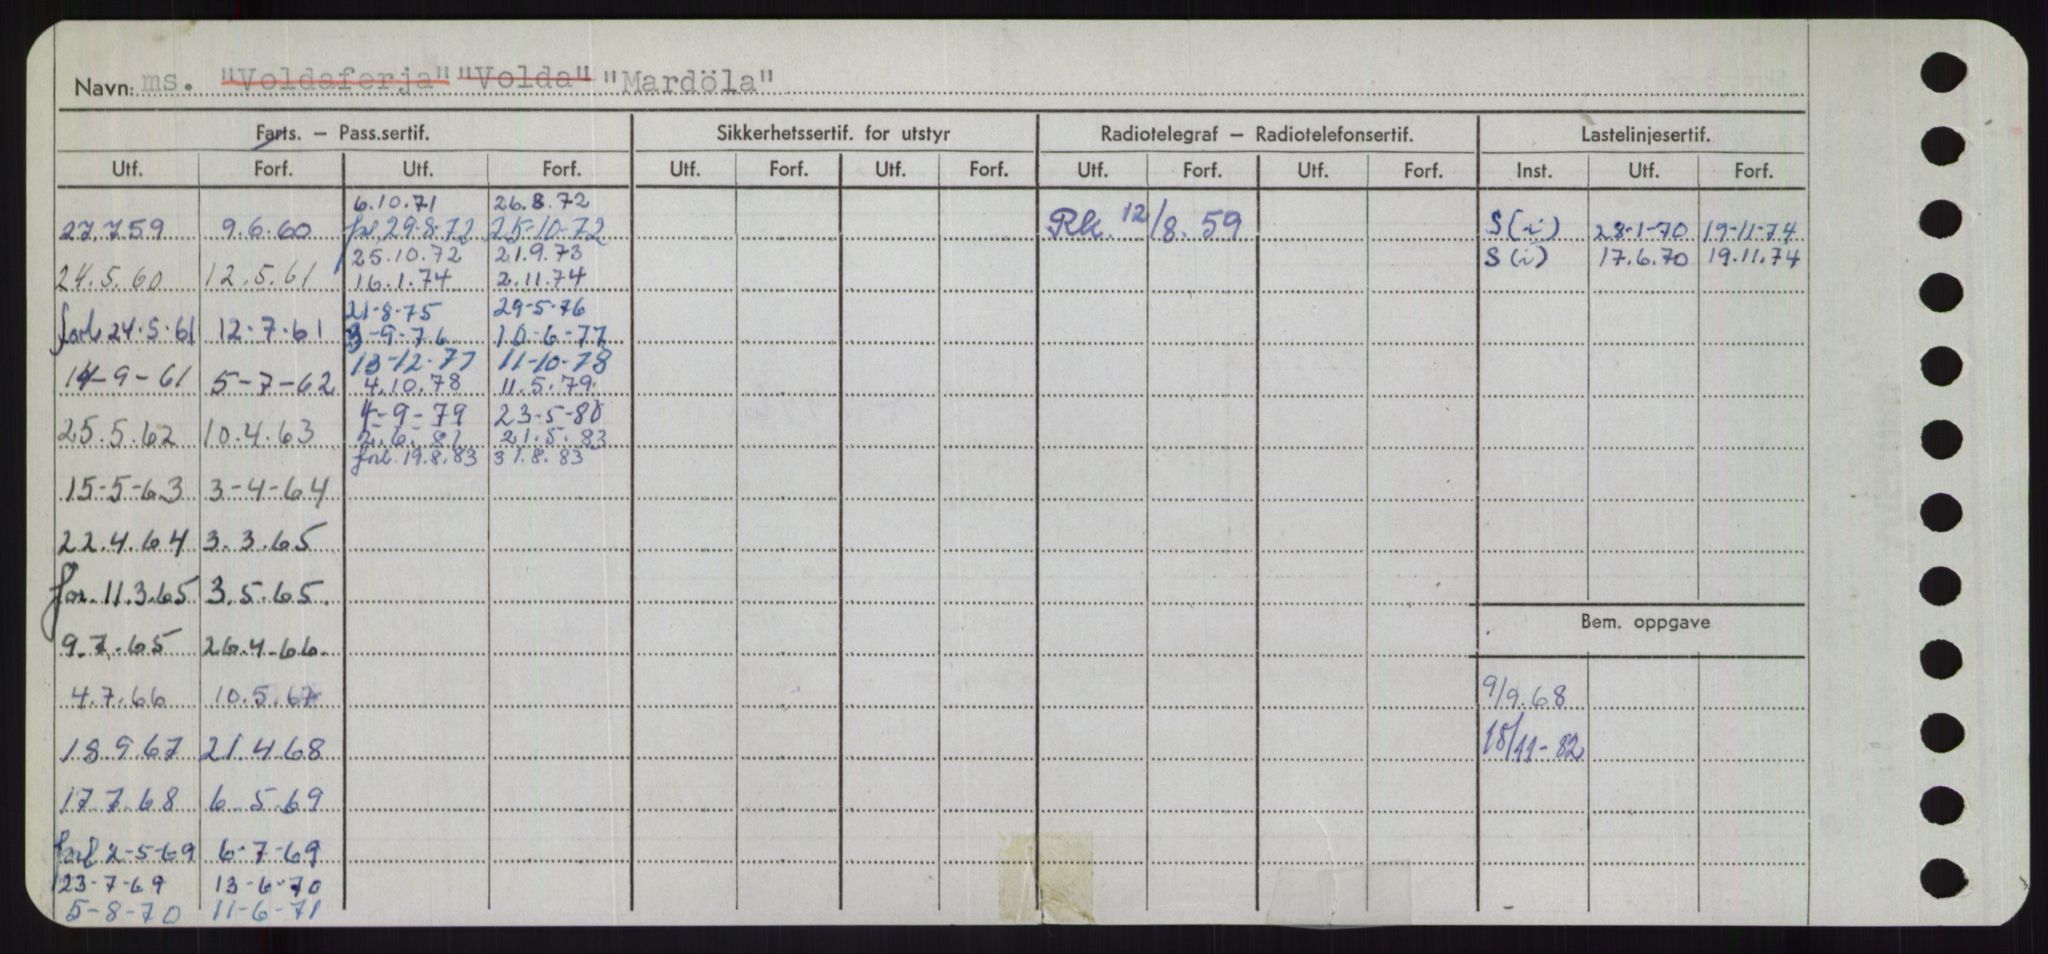 Navn: ms. "Voldaferja" "Volda" "Mardöla"
Farts. – Pass.sertif. Sikkerhetssertif. for utstyr Radiotelegraf – Radiotelefonsertif. Lastelinjesertif.
Utf. Forf. Utf. Forf. Utf. Forf. Utf. Forf. Utf. Forf. Utf. Forf. Inst. Utf. Forf.
6.10.71 26.8.72
27.7.59 9.6.60 forl 29.8.72 25-10-72 Rk. 12/8.59 S(i) 28-1-70 19-11-74
25.10.72 21.9.73 S(i) 17.6.70 19.11.74
24.5.60 12.5.61 16.1.74 2.11.74
21-8-75 29-5-76
forl 24.5.61 12-7-61 3-9-76 10-6-77
13-12-77 11-10-78
14-9-61 5-7-62 4.10.78 11.5.79
4-9-79 23-5-80
25.5.62 10.4.63 2.6.81 21.5.83
forl. 19.8.83 31.8.83
15-5-63 3-4-64
22.4.64 3.3.65
for. 11.3.65 3.5.65.
Bem. oppgave
9.7.65 26.4.66.
4.7.66 10.5.67 9/9.68
18.9.67 21.4.68 18/11-82
17.7.68 6.5.69
forl 2-5-69 6-7-69
23-7-69 13-6-70
5-8-70 11-6-71